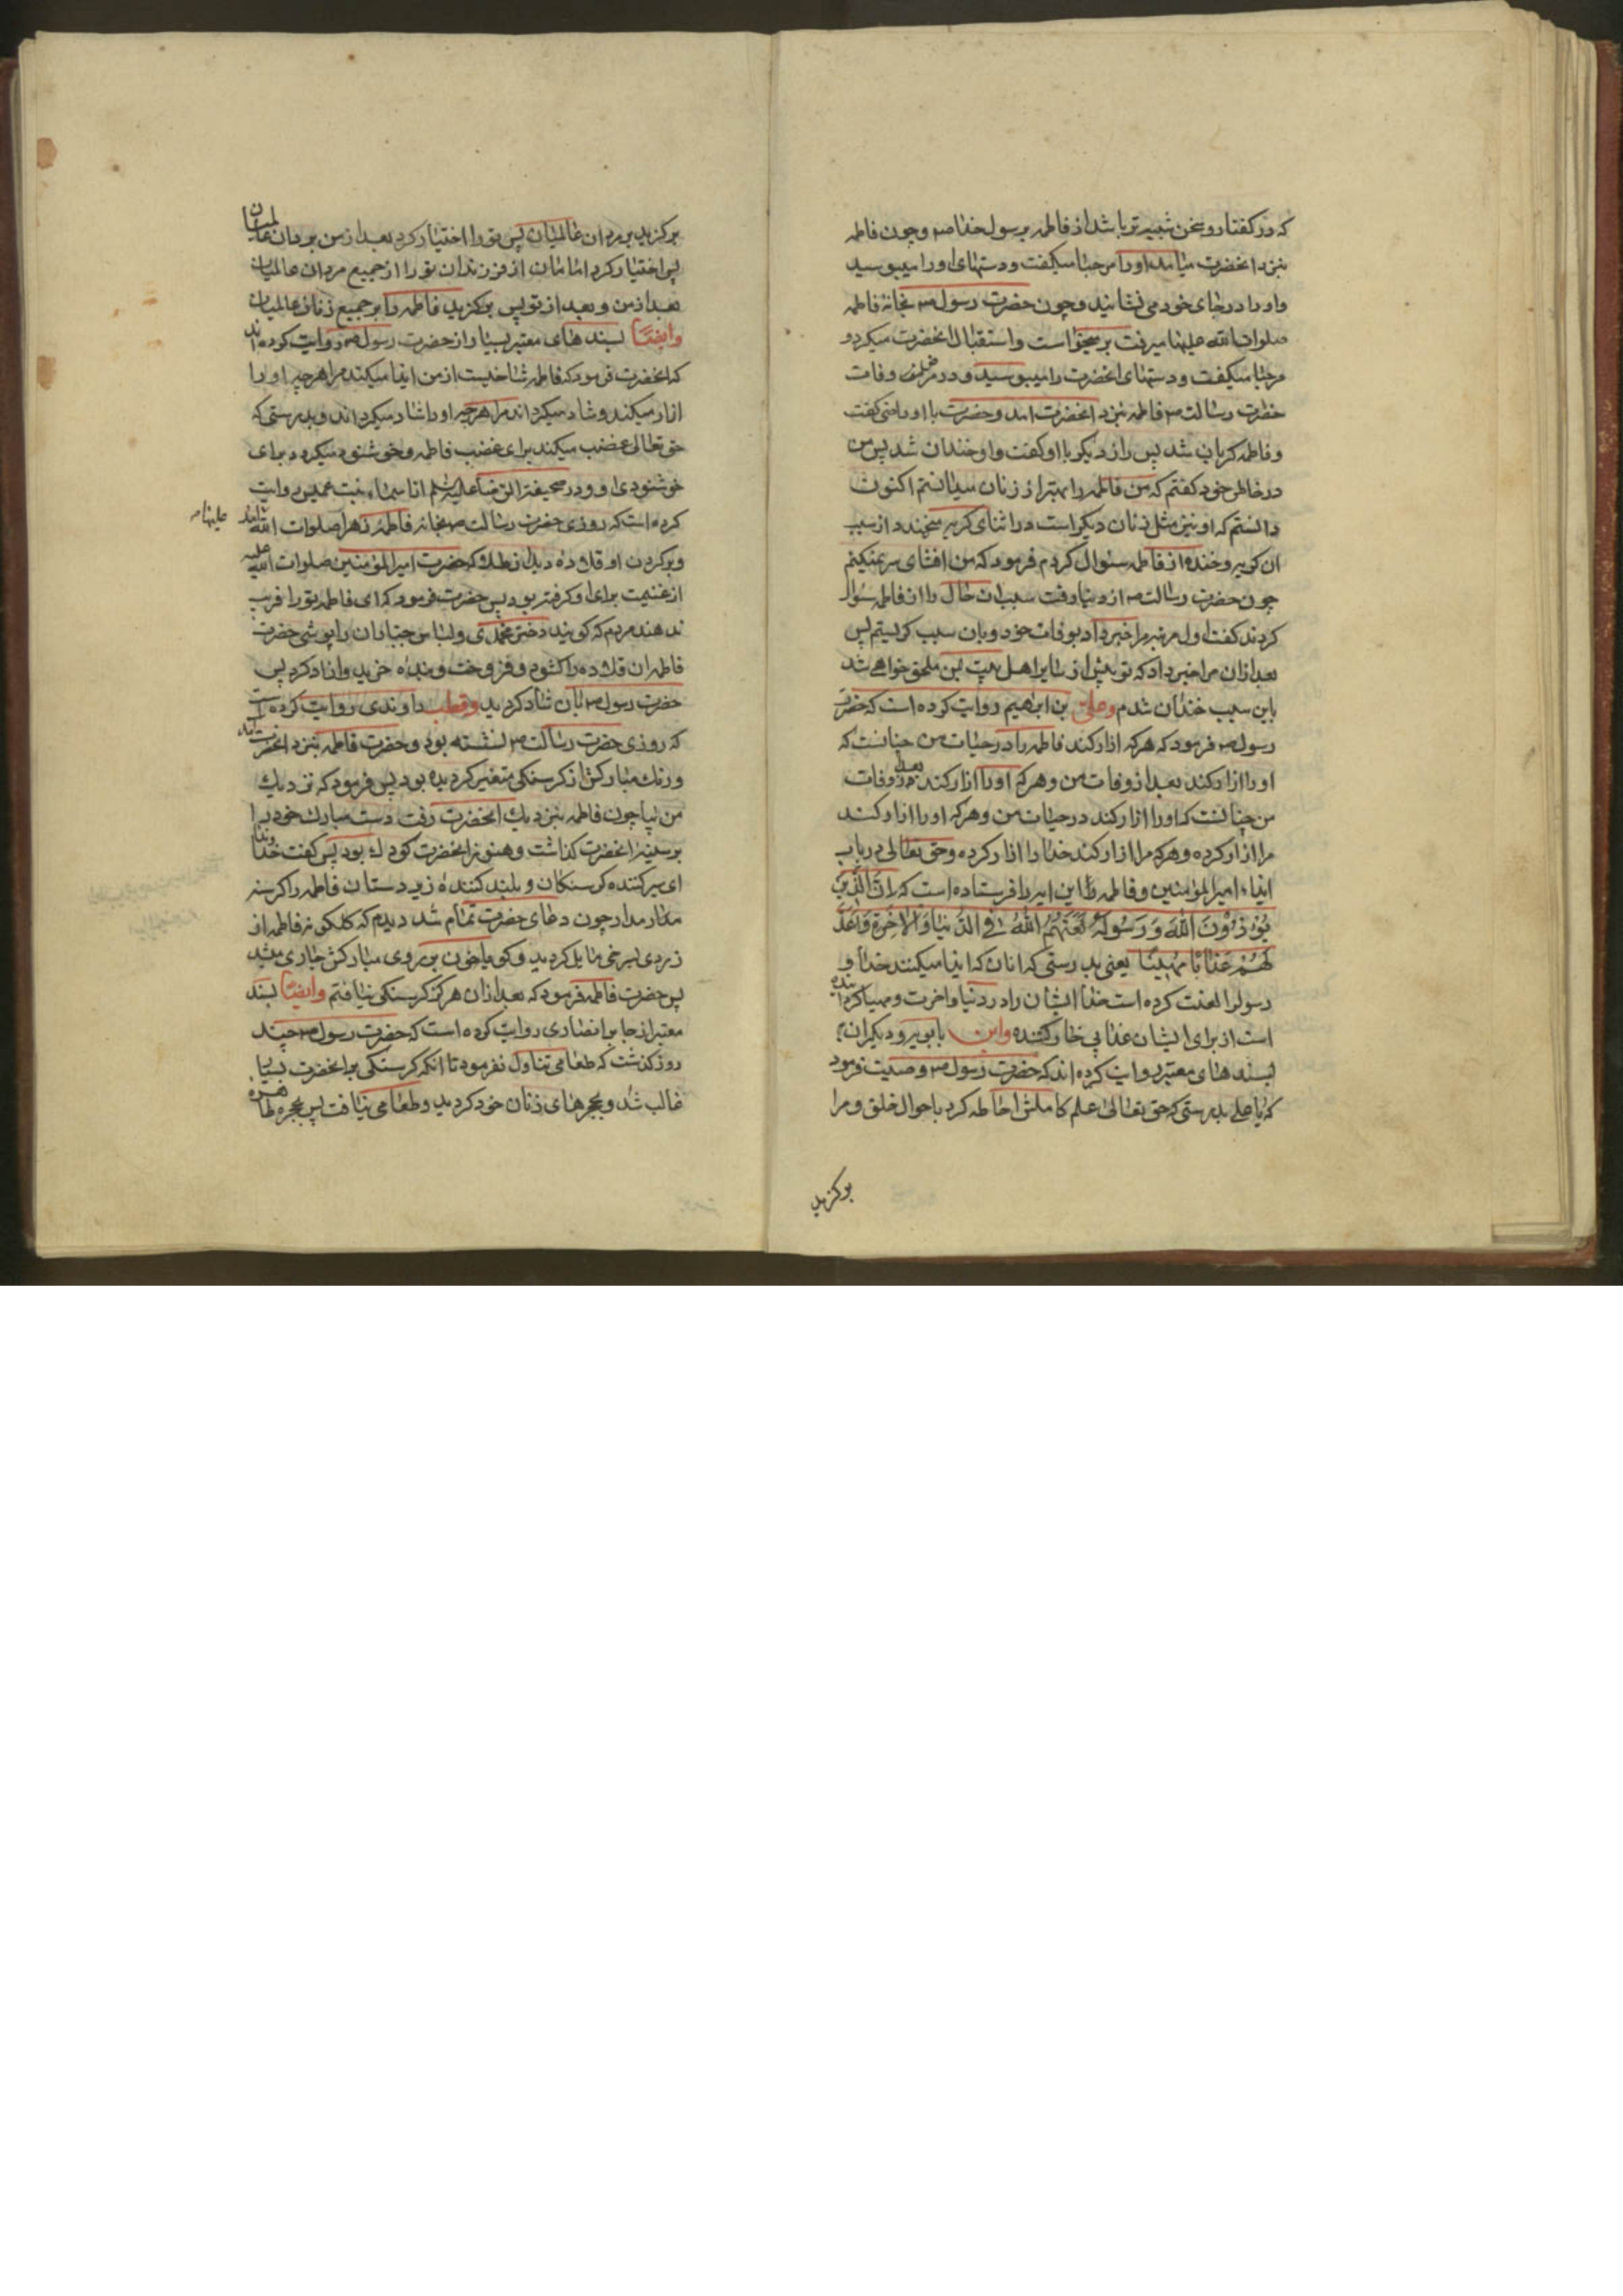 که در گفتار و سخن شبیه تر باشد از فاطمه برسول خدا صم و چون فاطمه
بنزد انحضرت میامد او را مرحبا میگفت و دستهای او را میبوسید
و او را در جای خود می نشانید و چون حضرت رسول صم بخانه فاطمه
صلوات الله علیها میرفت برمیخواست و استقبال انحضرت میکرد و
مرحبا میگفت و دستهای انحضرت را میبوسید و در مرض وفات
حضرت رسالت صم فاطمه بنزد انحضرت امد و حضرت با او رازی گفت
و فاطمه گریان شد پس راز دیگر با او گفت و او خندان شد پس من
در خاطر خود گفتم که من فاطمه را بهتر از زنان میدانستم اکنون
دانستم که او نیز مثل زنان دیگر است در اثنای گریه میخندد از سبب
ان گریه و خنده از فاطمه سئوال کردم فرمود که من افشای سر نمیکنم
چون حضرت رسالت صم از دنیا رفت سبب ان حال را از فاطمه سؤال
کردند گفت اول مرتبه مرا خبر داد بوفات خود و بان سبب گریستم پس
بعد ازان مرا خبر داد که تو پیش از سایر اهل بیت بمن ملحق خواهی شد
باین سبب خندان شدم و علی بن ابراهیم روایت کرده است که حضرت
رسول صم فرمود که هر که ازار کند فاطمه را در حیات من چنانست که
او را ازار کند بعد از وفات من و هر که او را ازار کند بعد از وفات
من چنانست که او را ازار کند در حیات من و هر که او را ازار کند
مرا ازار کرده و هر که مرا ازار کند خدا را ازار کرده و حق تعالی در باب
ایذاء امیر المؤمنین و فاطمه ع این ایه را فرستاده است که اِنَّ الَّذینَ
یُؤذُونَ اللهَ وَ رَسُولَهُ لَعَنَهُمُ اللهُ فِی الدُّنیَا وَ الاخِرَةِ وَ اَعَدَّ
لَهُم عَذَابًا مُهینًا یعنی بدرستی که انان که ایذا میکنند خدا و
رسول را لعنت کرده است خدا ایشان را در دنیا و اخرت و مهیا گردانیده
است از برای ایشان عذابی خوار کننده و ابن بابویه و دیگران
بسند های معتبر روایت کرده اند که حضرت رسول صم وصیت فرمود
که یا علی بدرستی که حق تعالی علم کاملش احاطه کرد باحوال خلق و مرا
برگزید
برگزید بر مردان عالمیان پس تو را اختیار کرد بعد از من بر مردان عالمیان
پس اختیار کرد امامان از فرزندان تو را از جمیع مردان عالمیان
بعد از من و بعد از تو پس برگزید فاطمه را بر جمیع زنان عالمیان
وایضًا بسند های معتبر بسیار از حضرت رسول صم روایت کرده اند
که انحضرت فرمود که فاطمه شاخیست از من ایذا میکند مرا هر چه او را
ازار میکند و شاد میگرداند مرا هر چه او را شاد میگرداند و بدرستی که
حق تعالی غضب میکند برای غضب فاطمه و خوشنود میگردد برای
خوشنودی او و در صحیفة الرضا علیه السلم از اسماء بنت عمیس روایت
کرده است که روزی حضرت رسالت صم بخانه فاطمه زهرا صلوات الله علیها امد
علیها صم
و بر گردن او قلاده دید از طلا که حضرت امیر المؤمنین صلوات الله علیه
از غنیمت برای او گرفته بود پس حضرت فرمود که ای فاطمه تو را فریب
ندهند مردم که گویند دختر محمدی و لباس جباران را پوشی حضرت
فاطمه ان قلاده را گشود و فروخت و بنده خرید و ازاد کرد پس
حضرت رسول صم بان شاد گردید و قطب راوندی روایت کرده است
که روزی حضرت رسالت صم نشسته بود و حضرت فاطمه بنزد انحضرت امد
و رنک مبارکش از گرسنگی متغیر گردیده بود پس فرمود که نزدیک
من بیا چون فاطمه بنزدیک انحضرت رفت دست مبارک خود را
بر سینه انحضرت گذاشت و هنوز انحضرت کودک بود پس گفت خداوندا
ای سیر کننده گرسنگان و بلند کننده زیر دستان فاطمه را گرسنه
مدار مدار چون دعای حضرت تمام شد دیدم که گلگونه فاطمه از
زردی بسرخی مایل گردید و گویا خون بر روی مبارکش جاری میشد
پس حضرت فاطمه فرمود که بعد ازان هرگز گرسنگی نیافتم وایضًا بسند
معتبر از جابر انصاری روایت کرده است که حضرت رسول صم چند
روز گذشت که طعامی تناول نفرمود تا انکه گرسنگی بر انحضرت بسیار
غالب شد و بحجرهای زنان خود گردید و طعامی نیافت پس بحجره طاهره